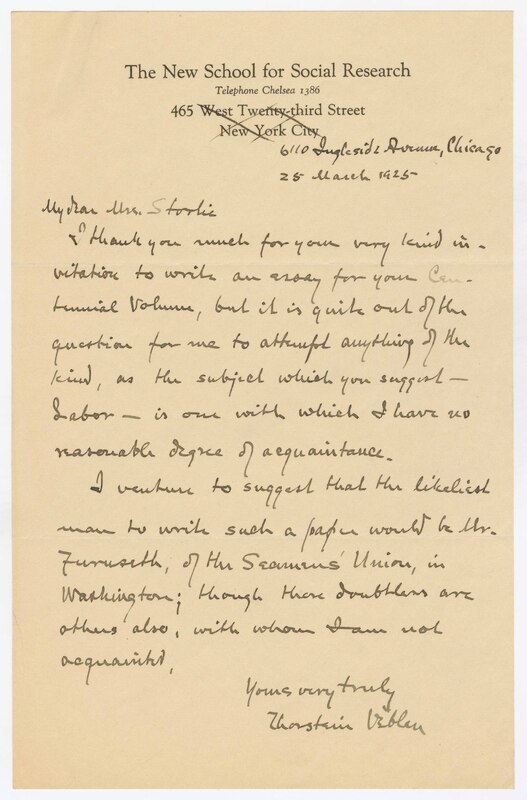 The New School for Social Research
Telephone Chelsea 1386
465 West Twenty-third Street
New York City
6110 Ingleside Avenue, Chicago
25 March 1925
My dear Mrs. Storlie
I thank you much for your very kind in-
vitation to write an essay for your Cen-
tennial Volume, but it is quite out of the
question for me to attempt anything of the
kind, as the subject which you suggest —
Labor — is one with which I have no
reasonable degree of acquaintance.
I venture to suggest that the likeliest
man to write such a paper would be Mr.
Furuseth, of the Seamens' Union, in
Washington; though there doubtless are
others also, with whom I am not
acquainted,
Yours very truly
Thorstein Veblen